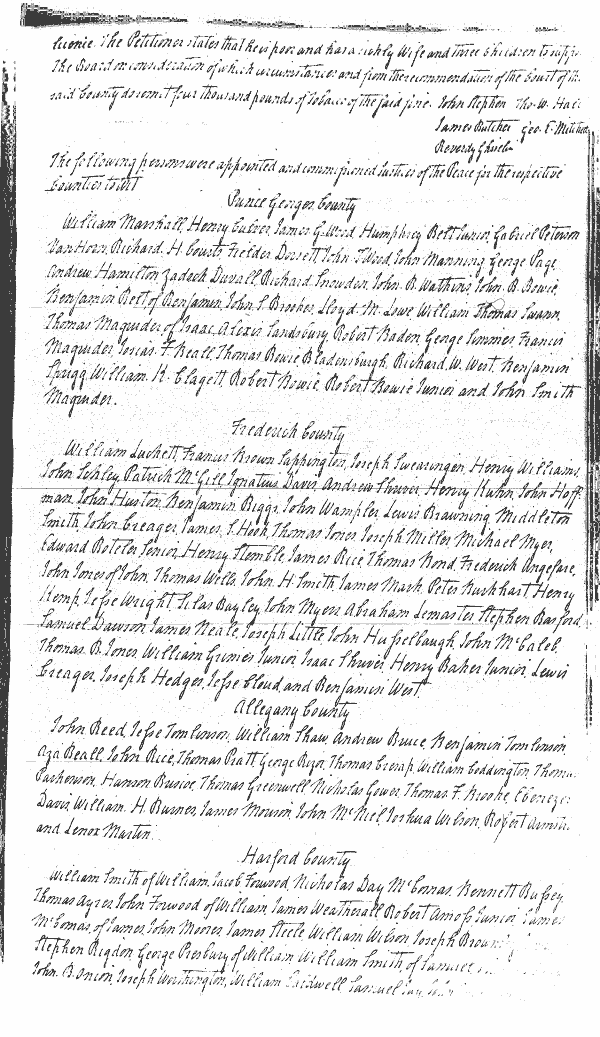 licence. The Petitioner states that he is poor and has a sickly Wife and three Children to
The Board on consideration of which circumstances and from the recommendation of the Court of
said County do remit four thousand pounds of Tobacco of the said fine. John Stephen Tho. W. Hall
James Butcher Geo. E. Mitchell
Reverdy Ghiselin
The following persons were appointed and commissioned Justices of the Peace for the respective
Counties to wit
Prince Georges County
William Marshall, Henry Culver, James G. Wood Humphrey Belt Junior, Gabriel Peterson
VanHorn, Richard. H Courts, Fielder Dorsett John. T Wood, John Manning George Page
Andrew Hamilton, Zadock Duvall, Richard Snowden, John. B. Watkins John. B. Bowie,
Benjamin Belt of Benjamin, John S. Brookes, Lloyd. M. Lowe William Thomas Swann,
Thomas Magruder of Isaac, Alexis Lansbury Robert Baden, George Simmes, Francis
Magruder, Josias. F. Beall, Thomas Bowie Bladensburgh, Richard. W. West, Benjamin
Sprigg William. K. Clagett, Robert Bowie, Robert Bowie Junior and John Smith
Magruder.
Frederick County
William Luckett, Francis Brown Sappington, Joseph Swearingen, Henry Williams,
John Schley, Patrick McGill, Ignatius Davis, Andrew Shriver, Henry Kuhn, John Hoff
man, John Huston, Benjamin Biggs, John Wampler, Lewis Browning Middleton
Smith, John Creager, James. S. Hook, Thomas Jones Joseph Miller Michael Myer,
Edward Boteler Senior, Henry Stemble, James Rice, Thomas Bond, Frederick
John Jones of John, Thomas Wells, John. H Smith James Mark Peter Burkhart Henry
Kemp, Jesse Wright Silas Bayley John Myers Abraham Lemaster Stephen Rasford
Samuel Dawson, James Neale, Joseph Little John Husselbaugh, John McCaleb,
Thomas. B. Jones, William Grimes Junior, Isaac Shriver Henry Baker Junior, Lewis
Creager, Joseph Hedges, Jesse Cloud, and Benjamin West
Allegany County
John Reed, Jesse Tomlinson, William Shaw, Andrew Bruce, Benjamin Tomlinson
Aza Beall, John Rice, Thomas Pratt George Rizor, Thomas Cresap, William Coddington,
Parkerson, Hanson Briscoe, Thomas Greenwell Nicholas Gower, Thomas. F. Brooke, Ebenezer
Davis, William. H Burnes, James Mouson, John McNiel, Joshua Wilson, Robert
and Lenox Martin.
Harford County
William Smith of William, Jacob Forwood, Nicholas Day McComas, Bennett Bussey,
Thomas Ayres, John Forwood of William, James Weatherall Robert Amoss Junior, James
McComas, of James, John Moores, James Steele William Wilson Joseph
Stephen Rigdon, George Presbury of William William Smith, of Samuel
John. B. Onion, Joseph Worthington, William Caldwell, Samuel